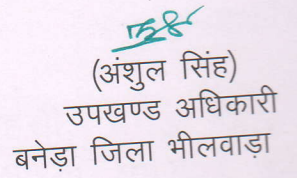 (अंशुल सिंह)
उपखण्ड अधिकारी
बनेड़ा जिला भीलवाड़ा